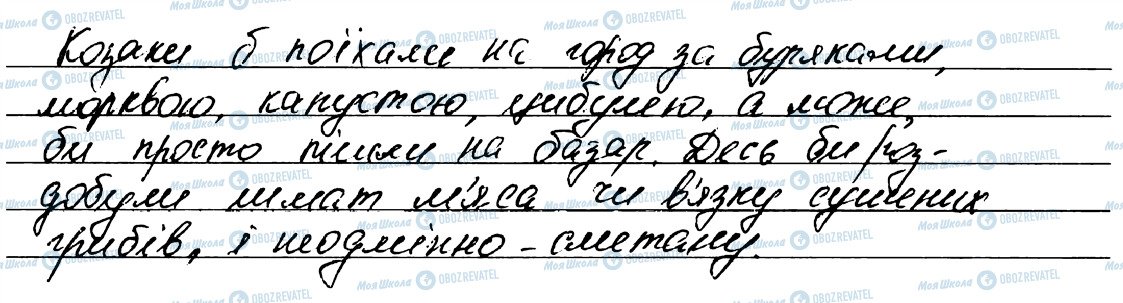 Козаки б поїхали на город за буряками,
морквою, капустою, цибулею, а може,
би просто пішли на базар. Десь би роз-
добули шмат м'яса чи в'язку сушених
грибів, і неодмінно - сметану.